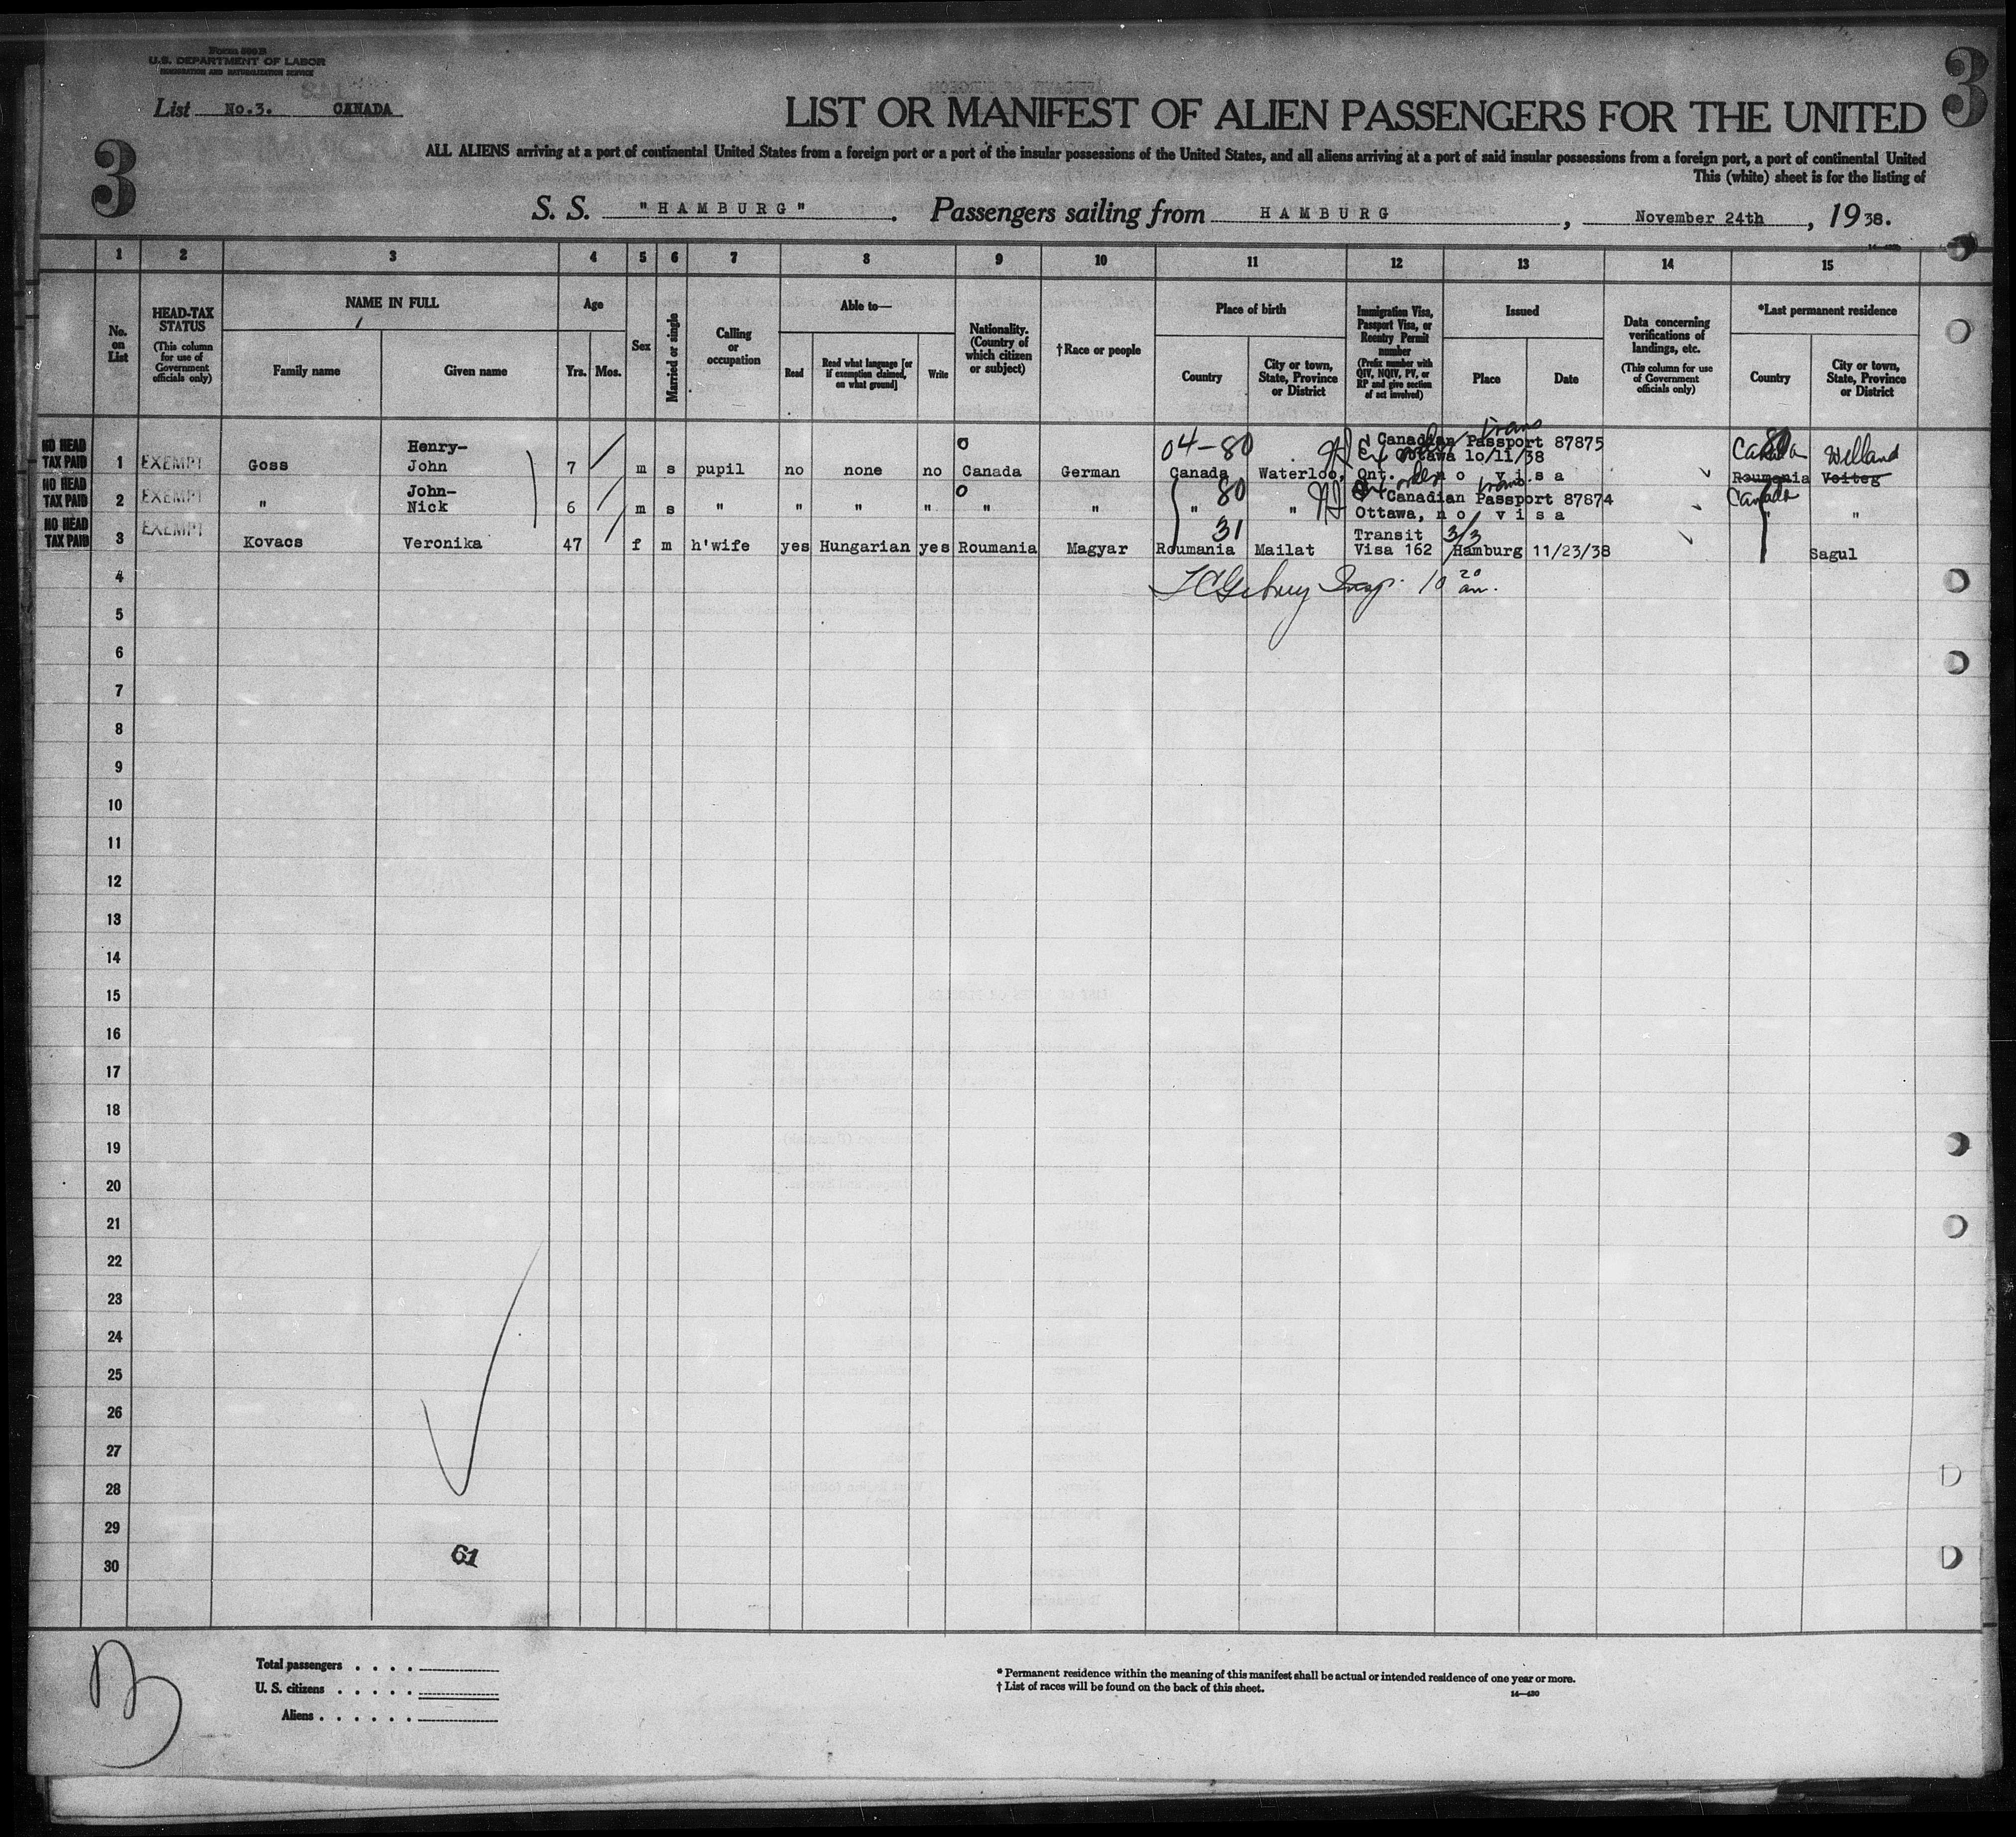 Form 500 B
U.S. DEPARTMENT OF LABOR
IMMIGRATION AND NATURALIZATION SERVICE
List No.3. CANADA
3
3
LIST OR MANIFEST OF ALIEN PASSENGERS FOR THE UNITED
ALL ALIENS arriving at a port of continental United States from a foreign port or a port of the insular possessions of the United States, and all aliens arriving at a port of said insular possessions from a foreign port, a port of continental United
This (white) sheet is for the listing of
S. S. "HAMBURG". Passengers sailing from HAMBURG, November 24th, 1938.
1 2 3 4 5 6 7 8 9 10 11 12 13 14 15
No. on List
HEAD-TAX STATUS (This column for use of Government officials only)
NAME IN FULL
Family name
Given name
Age
Yrs. Mos.
Sex
Married or single
Calling or occupation
Able to—
Read
Read what language [or if exemption claimed, on what ground]
Write
Nationality. (Country of which citizen or subject)
†Race or people
Place of birth
Country
City or town, State, Province or District
Immigration Visa, Passport Visa, or Reentry Permit number (Prefix number with QIV, NQIV, PV, or RP and give section of act involved)
Issued
Place
Date
Data concerning verifications of landings, etc. (This column for use of Government officials only)
*Last permanent residence
Country
City or town, State, Province or District
NO HEAD TAX PAID 1 EXEMPT Goss Henry-John 7 m s pupil no none no Canada German 04-80 Canada Waterloo, Ont. Canadian Passport 87875 Ottawa 10/11/38 no visa trans Canada 80 Welland Roumania Voiteg
NO HEAD TAX PAID 2 EXEMPT " John-Nick 6 m s " " " " " " 80 " " Canadian Passport 87874 Ottawa, no visa trans. Canada " "
NO HEAD TAX PAID 3 EXEMPT Kovacs Veronika 47 f m h'wife yes Hungarian yes Roumania Magyar 31 Roumania Mailat Transit Visa 162 3/3 Hamburg 11/23/38 Sagul
4 Insp. 10 20 am.
5
6
7
8
9
10
11
12
13
14
15
16
17
18
19
20
21
22
23
24
25
26
27
28
29
30
61
Total passengers . . . .
U. S. citizens . . . . .
Aliens . . . . . .
* Permanent residence within the meaning of this manifest shall be actual or intended residence of one year or more.
† List of races will be found on the back of this sheet.
14—430